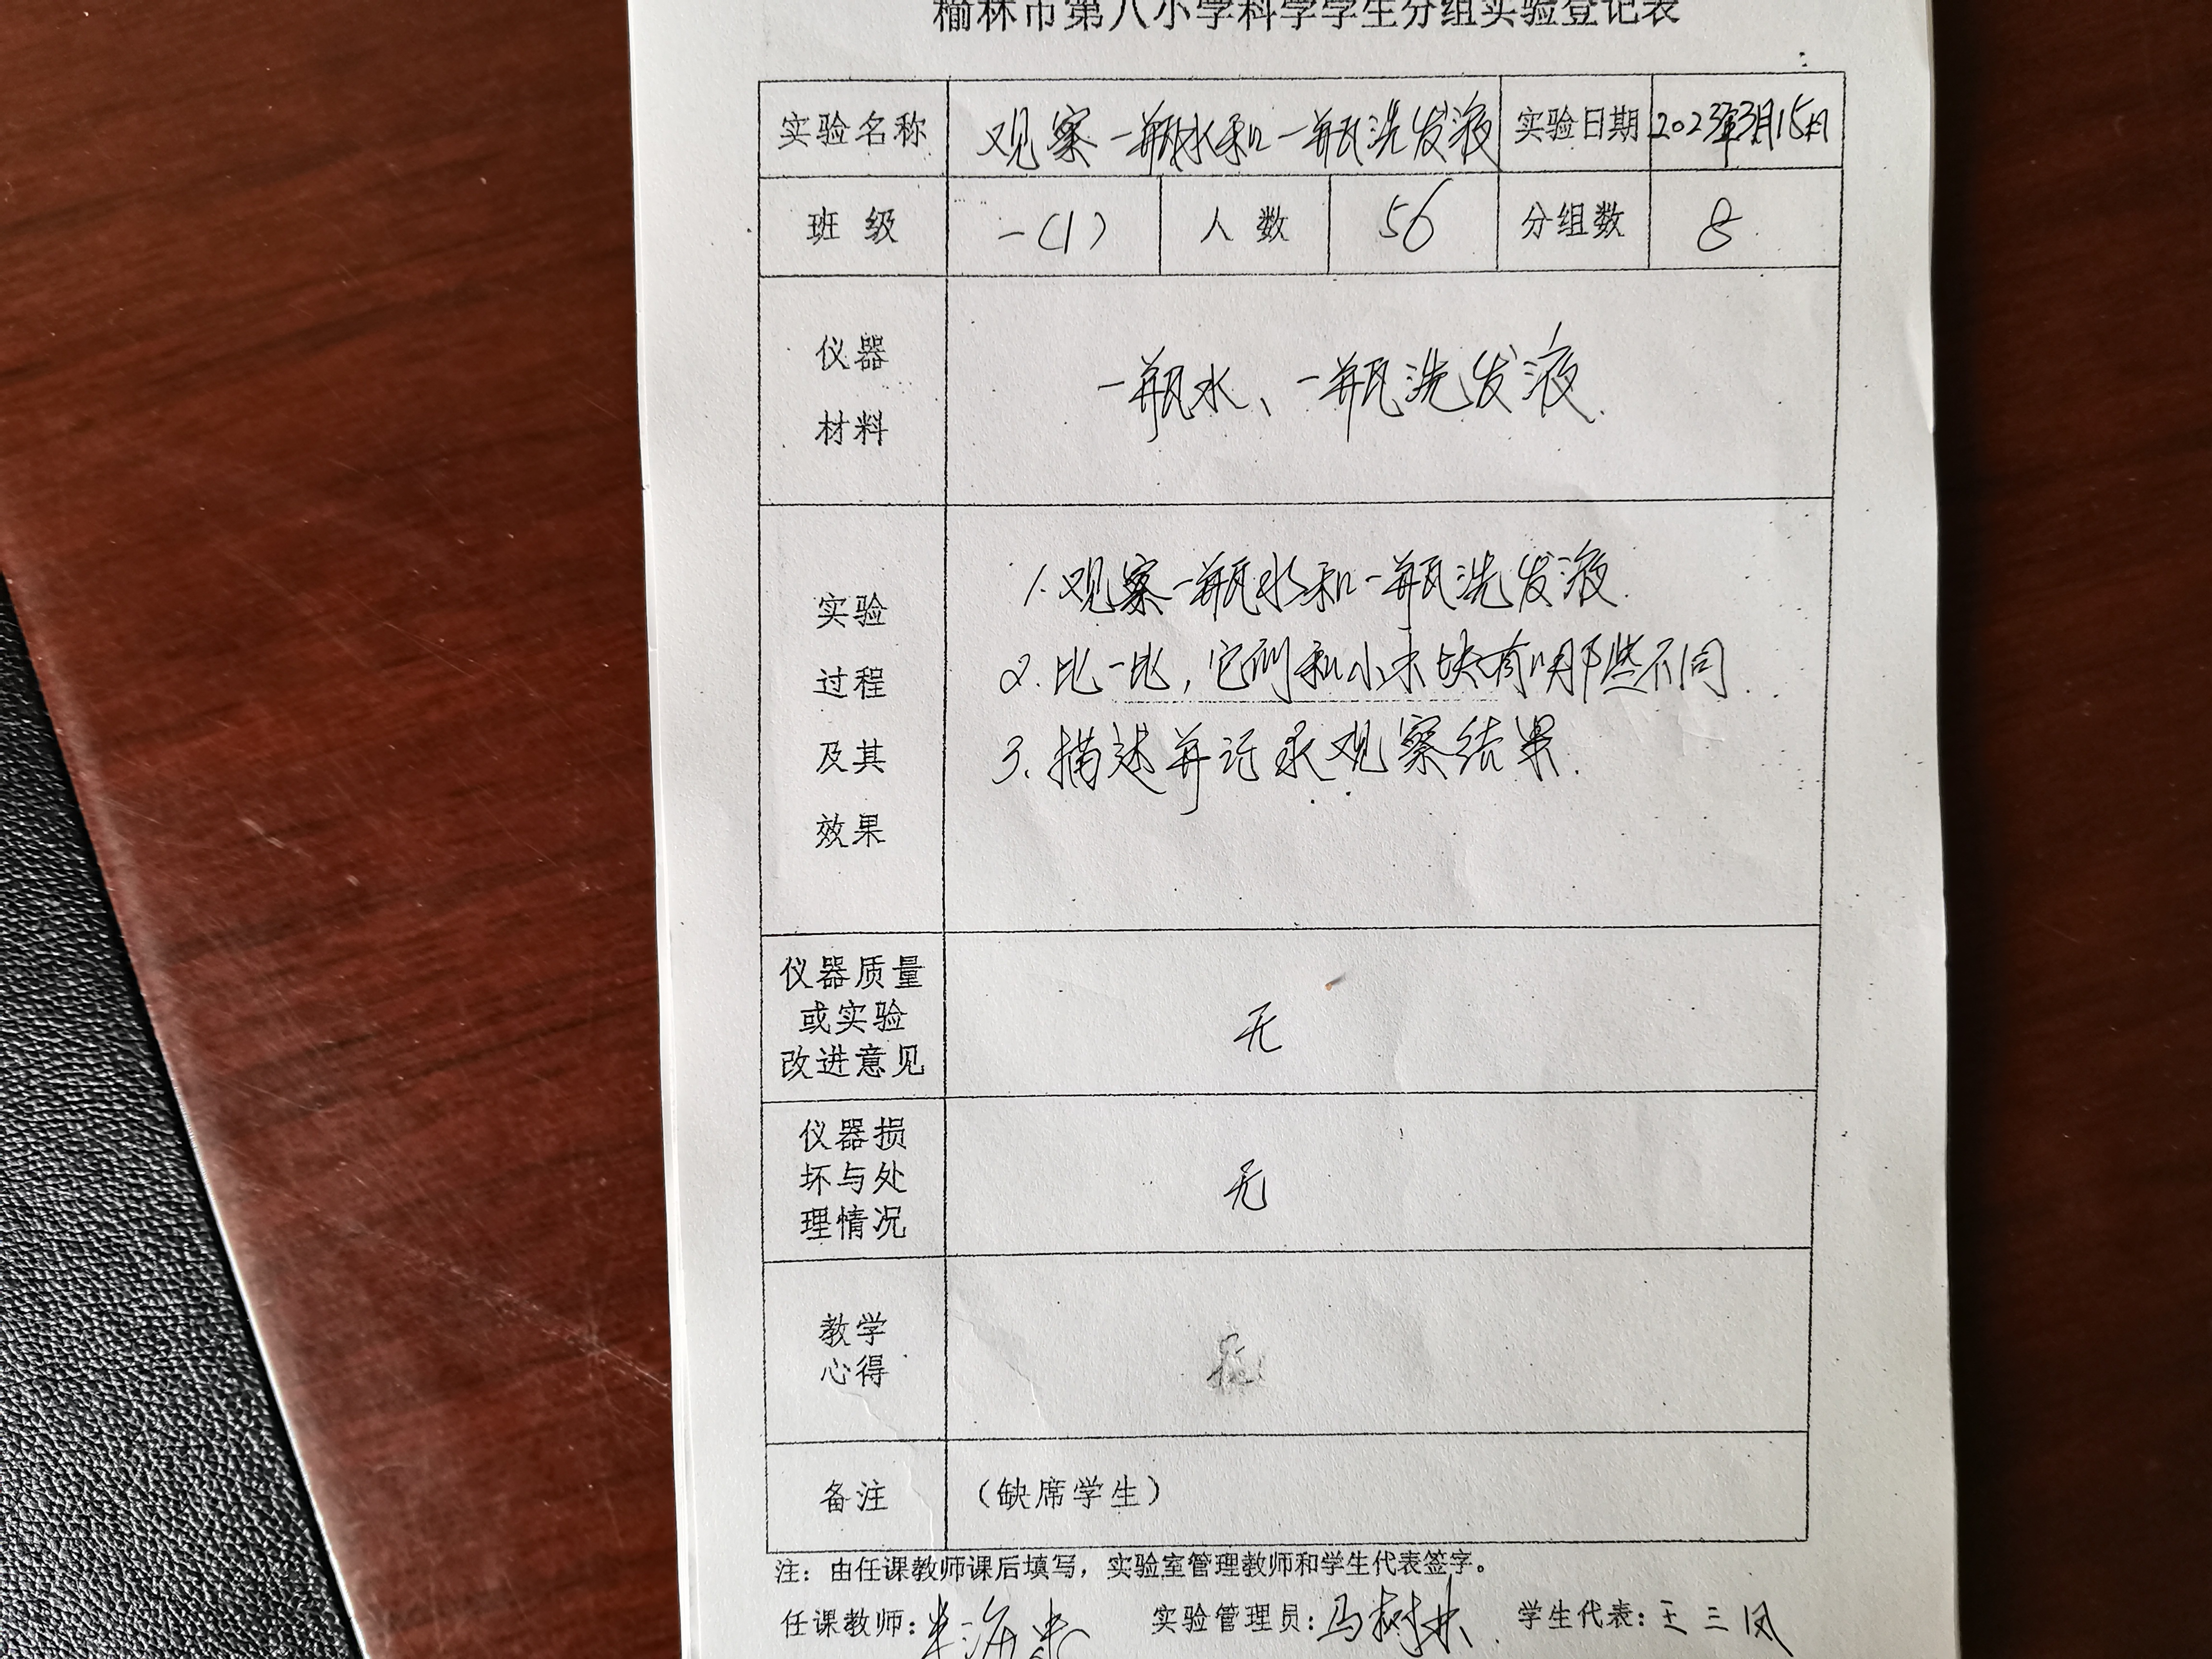 榆林市第八小学科学学生分组实验登记表
实验名称 观察一瓶水和一瓶洗发液 实验日期 2023年3月15日
班级 一(1) 人数 56 分组数 8
仪器
材料
一瓶水、一瓶洗发液.
实验
过程
及其
效果
1.观察一瓶水和一瓶洗发液.
2.比一比,它们和小木块有哪些不同.
3.描述并记录观察结果.
仪器质量
或实验
改进意见
无
仪器损
坏与处
理情况
无
教学
心得
备注 (缺席学生)
注: 由任课教师课后填写, 实验室管理教师和学生代表签字。
任课教师: 实验管理员: 马树林 学生代表: 王三凤